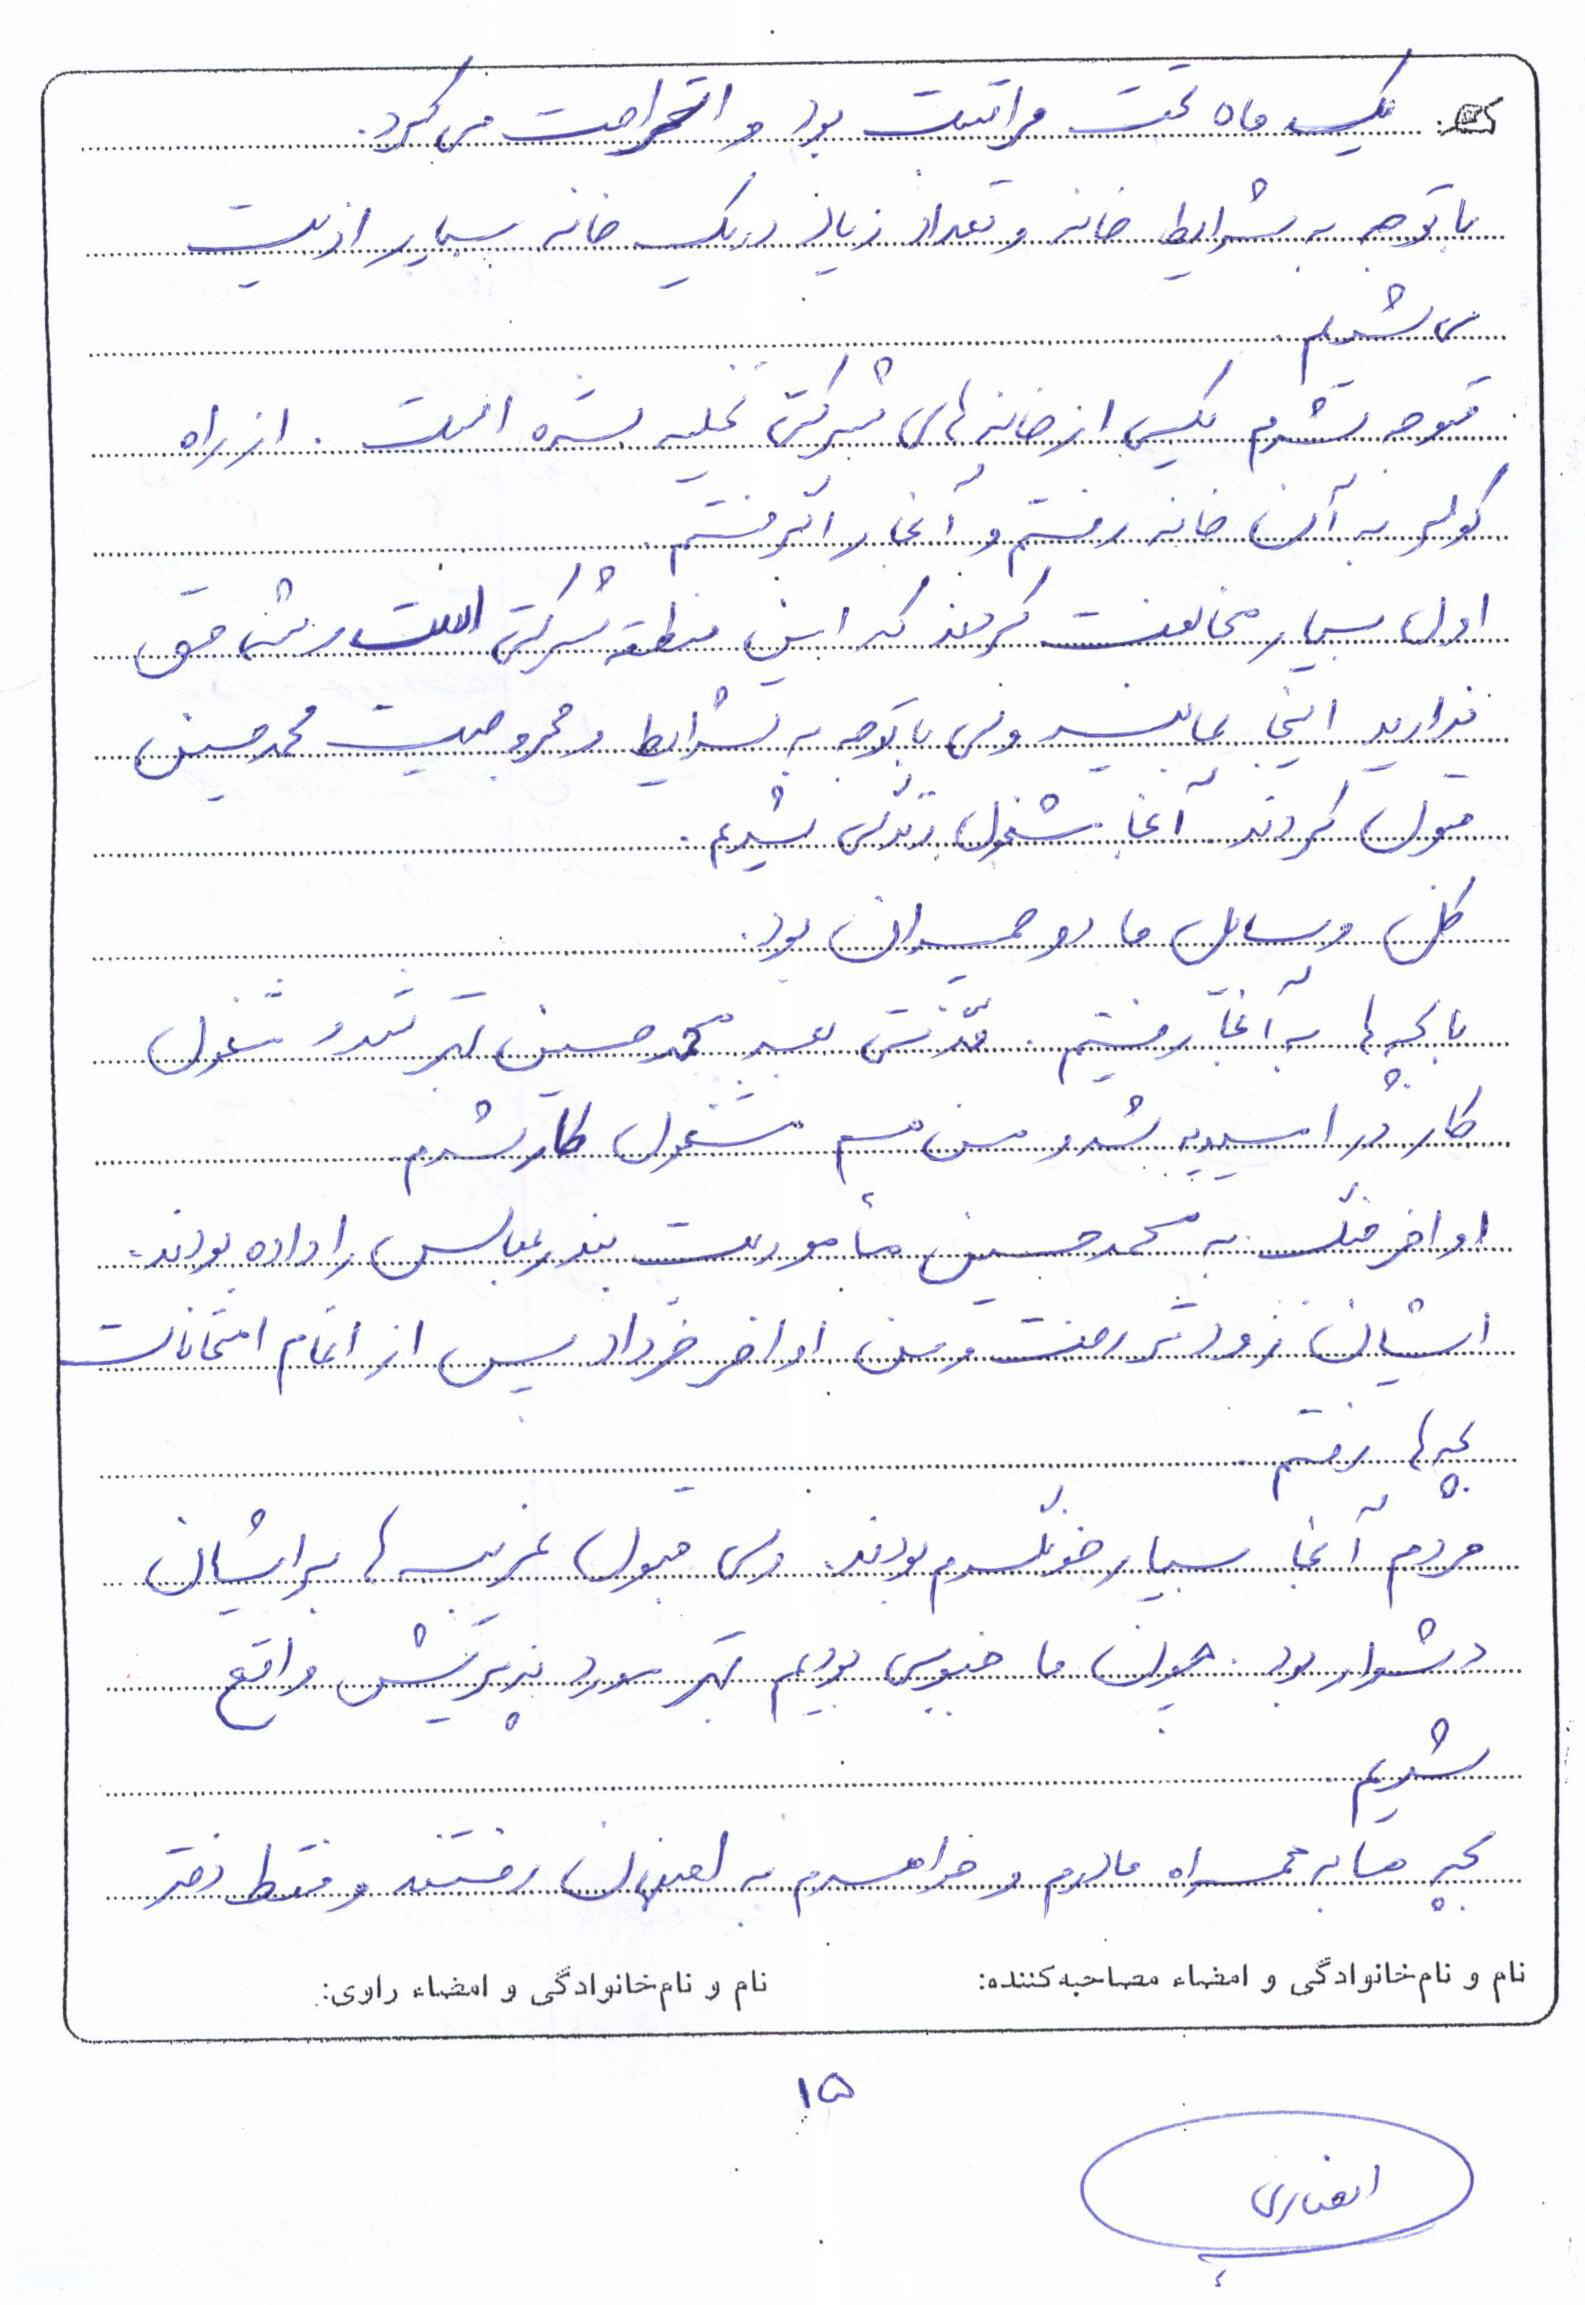 یک ماه تحت مراقبت بود و استراحت می کرد.
با توجه به شرایط خانه و تعداد زیاد در یک خانه بسیار اذیت
می شدیم
متوجه شدم یکی از خانه های شرکتی تخلیه شده است. از راه
کولر به آن خانه رفتم و آنجا را گرفتم.
اول بسیار مخالفت کردند که این منطقه شرکتی است و شما حق
ندارید اینجا بمانید ولی با توجه به شرایط و مجروحیت محمدحسین
قبول کردند آنجا مشغول زندگی شدیم.
کل وسایل ما دو چمدان بود.
با بچه ها به آنجا رفتیم. مدتی بعد محمدحسین بهتر شد و مشغول
کار در امیدیه شد و من هم مشغول کار شدم
اواخر جنگ به محمدحسین مأموریت بندرعباس را داده بودند.
ایشان زودتر رفت و من اواخر خرداد پس از اتمام امتحانات
بچه ها رفتم
مردم آنجا بسیار خونگرم بودند. ولی قبول غریبه ها برایشان
دشوار بود. چون ما جنوبی بودیم بهتر مورد پذیرش واقع
شدیم
بچه ها به همراه مادرم و خواهرم به اصفهان رفتند و فقط دختر
نام و نام خانوادگی و امضاء مصاحبه کننده: نام و نام خانوادگی و امضاء راوی:
۱۵
انصاری